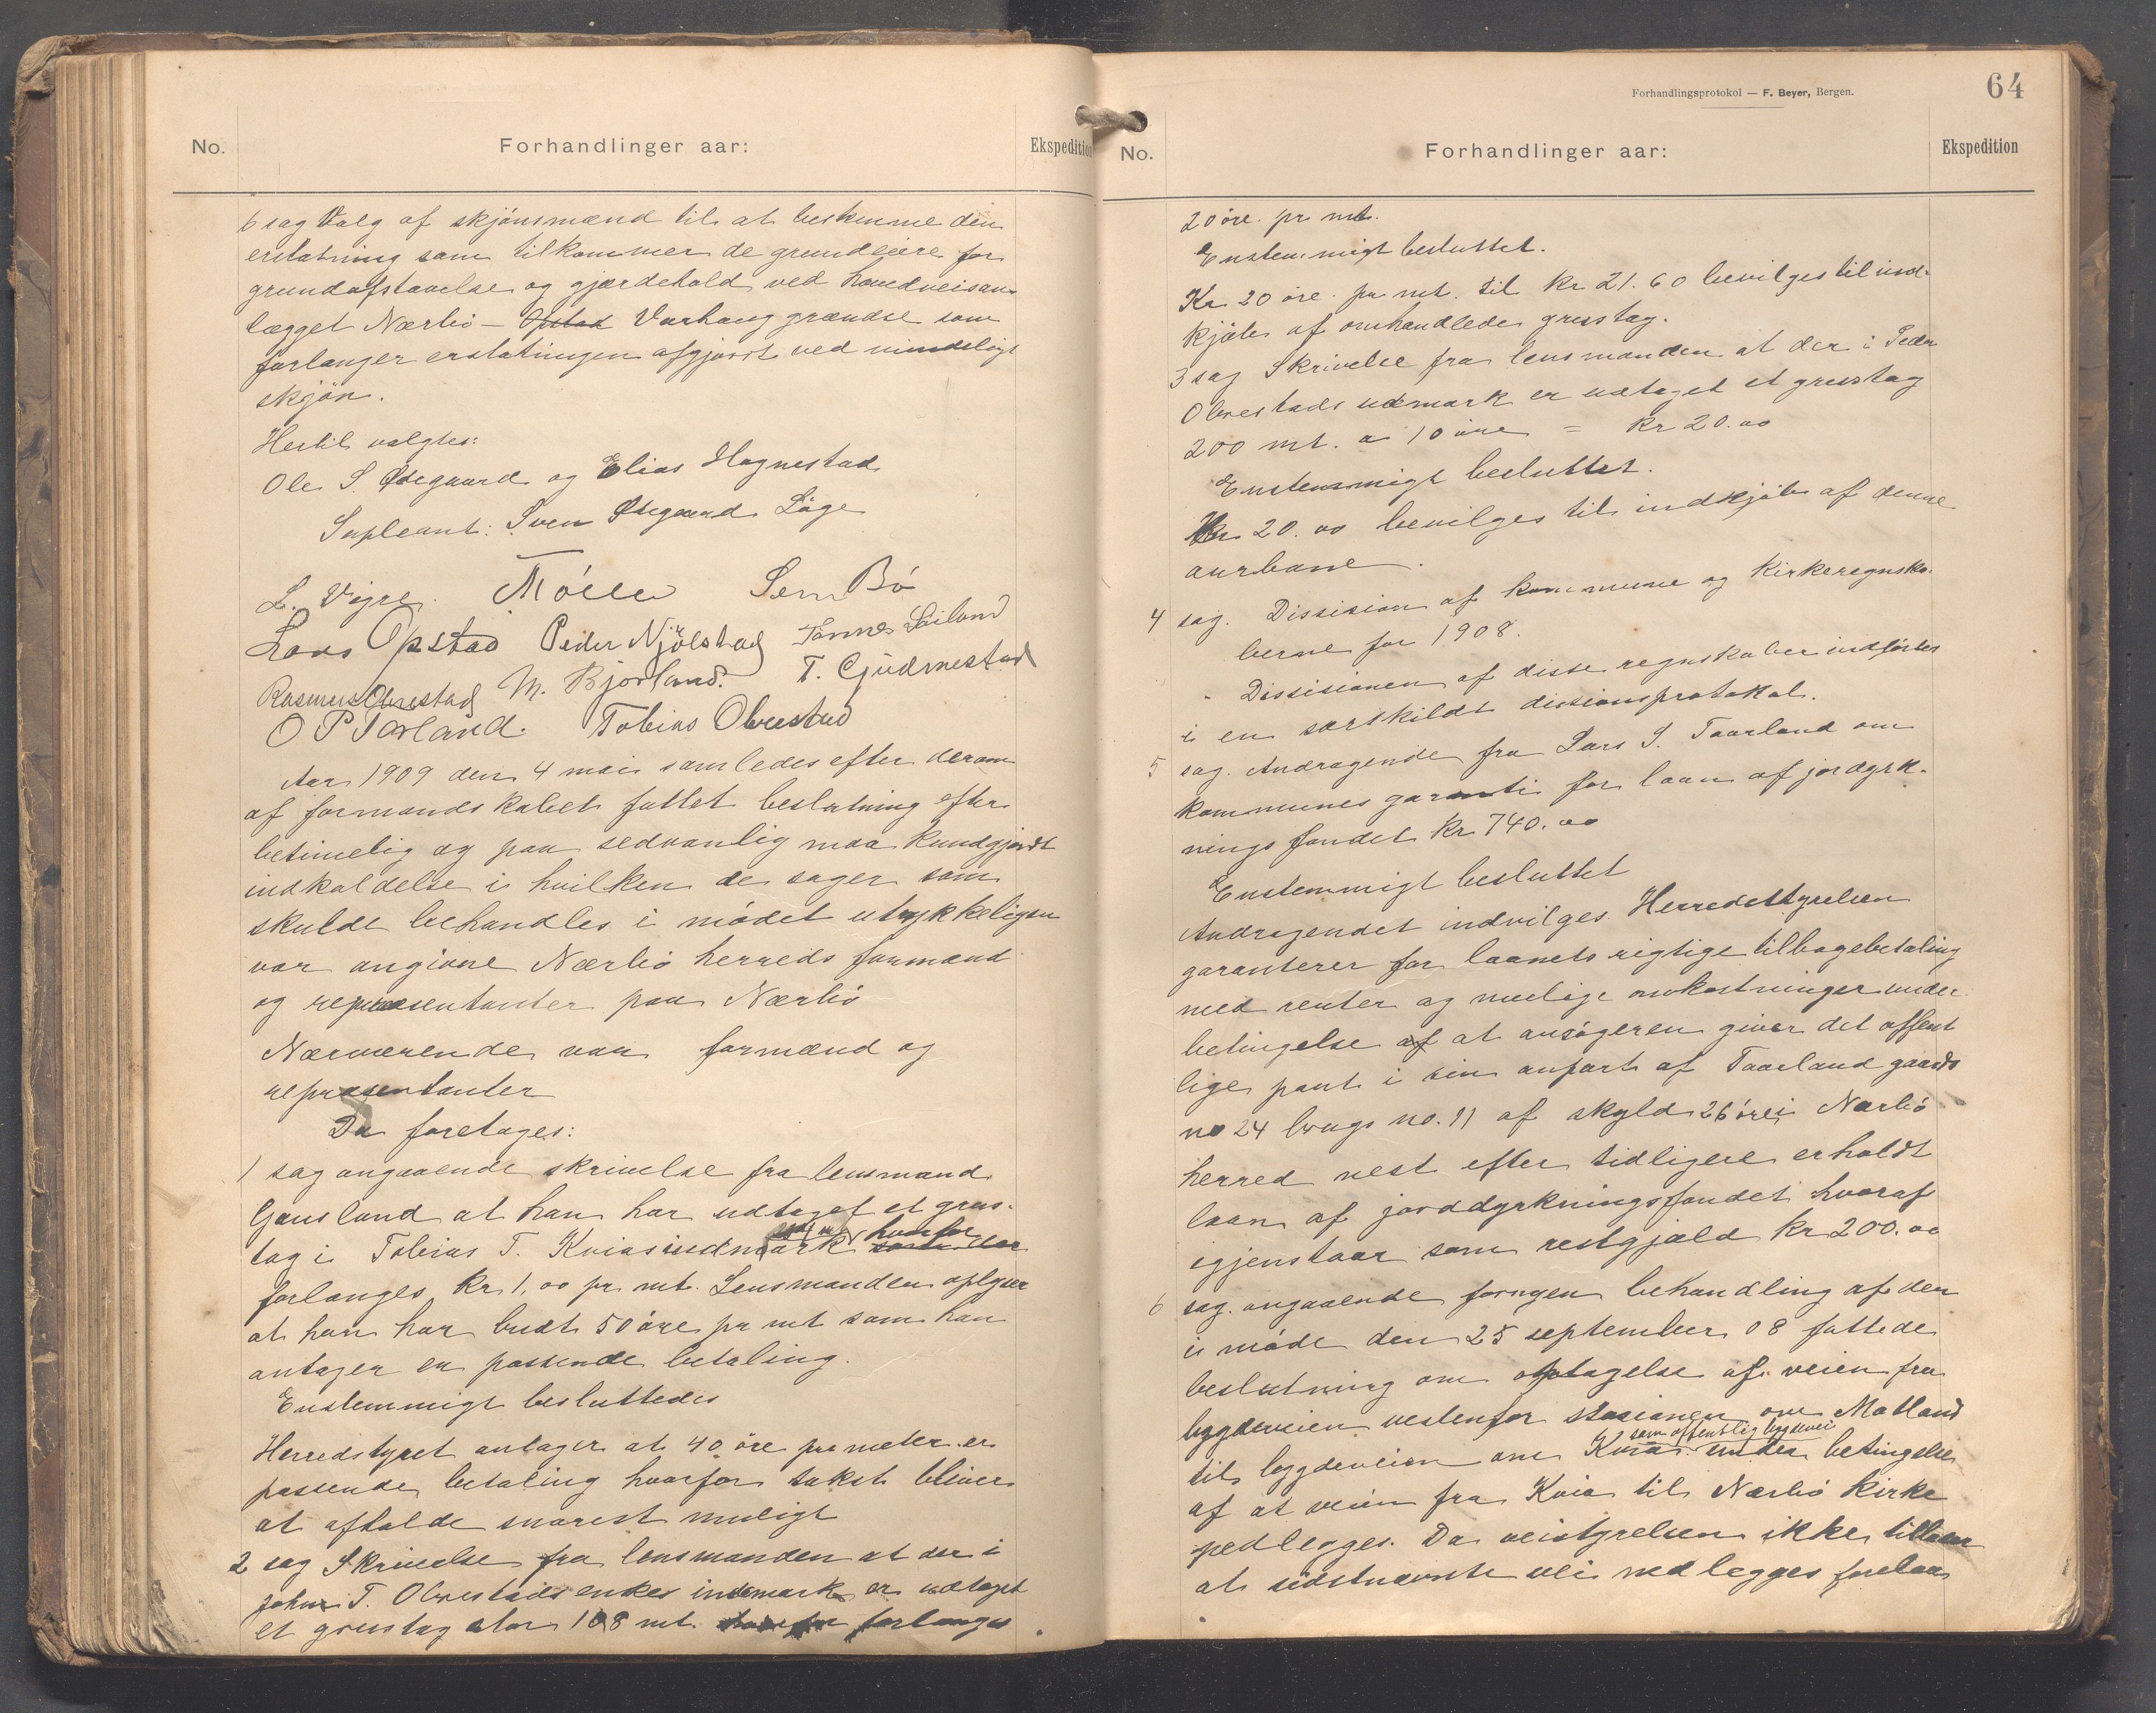 No.
Forhandlinger aar:
Ekspedition
6 sag Valg af skjönsmænd til at bestemme den
erstatning som tilkommer de grundeiere for
grundafstaaelse og gjærdehold ved hovedveisan-
lægget Nærbö - Opstad Varhaug grændse som
forlanger erstatningen afgjort ved mindeligt
skjön.
Hertil valgtes:
Ole S. Ødegaard og Elias Hognestad
Supleant: Sven Ødegaard Läge
L. Vigre. Möller Sem Bö
Lars Opstad Peder Njölstad Tönnes Lailand
Rasmus Obrestad M. Bjorland. T. Gjudmestad
O P Torland. Tobias Obrestad
Aar 1909 den 4 mai samledes efter derom
af formandskabet fattet beslutning efter
betimelig og paa sedvanlig maa kundgjordt
indkaldelse i hvilken de sager som
skulde behandles i mödet utrykkeligen
var angivne Nærbö herreds formænd
og repræsentanter paa Nærbö
Nærværende var formænd og
repræsentanter
Da foretages:
1 sag angaaende skrivelse fra lensmand
Gausland at han har udtaget et grus-
tag i Tobias T. Kvias indmark hvorfor
forlanges Kr 1,00 pr mt. Lensmanden oplyser
at han har budt 50 öre pr mt som han
antager en passende betaling.
Enstemmigt besluttedes
Herredstyret antager at 40 öre pr meter er
passende betaling hvorfor takst bliver
at afholde snarest muligt
2 sag Skrivelse fra lensmanden at der i
John T. Obrestads enkes indemark er udtaget
et grustag stor 108 mt. hvorfor forlanges
Forhandlingsprotokol — F. Beyer, Bergen.
64
No.
Forhandlinger aar:
Ekspedition
20 öre. pr mt.
Enstemmigt besluttet.
Kr 20 öre. pr mt. til Kr 21.60 bevilges til ind-
kjöb af omhandlede grustag.
3 sag Skrivelse fra lensmanden at der i Peder
Obrestads udmark er udtaget et grustag
200 mt. a 10 öre = Kr 20.00
Enstemmigt besluttet.
Kr 20.00 bevilges til indkjöb af denne
aurbane.
4 sag. Dissision af kommune og Kirkeregnska-
berne for 1908.
Dissisionen af disse regnskaber indförtes
i en særskildt dissionsprotokol.
5 sag. Andragende fra Lars S. Taarland om
kommunes garanti for laan af jordyrk-
nings fondet Kr 740.00
Enstemmigt besluttet
Andragendet indvilges. Herredsttyrelsen
garanterer for laanets rigtige tilbagebetaling
med renter og mulige omkostninger under
betingelse af at ansögeren giver det offent
lige pant i sin anpart af Taarland gaards
no 24 brugs no. 11 af skyld 26 öre i Nærbö
herred nest efter tidligere erholdt
laan af jorddyrkningsfondet hvoraf
igjenstaar som restgjæld Kr 200.00
6 sag. angaaende fornyen behandling af den
i möde den 25 september 08 fattede
beslutning om optagelse af veien fra
bygdeveien vestenfor stasionen over Motland
som offentlig bygdevei
til bygdeveien om Kvia under betingelse
af at veien fra Kvia til Nærbö kirke
nedlegges. Da veistyrelsen ikke tillader
at sidstnævnte vei nedlegges forelaa